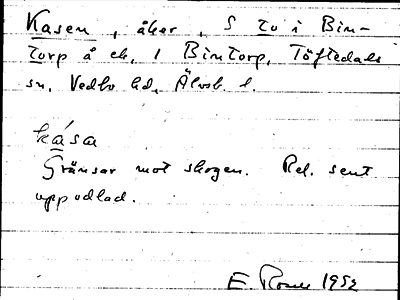 Kasen, åker, S to i Bin-
torp å ek. 1 Bintorp, Töftedals
sn, Vedbo hd, Älvsb. l.
kása
Gränsar mot skogen. Rel. sent
uppodlad.
E. 1952